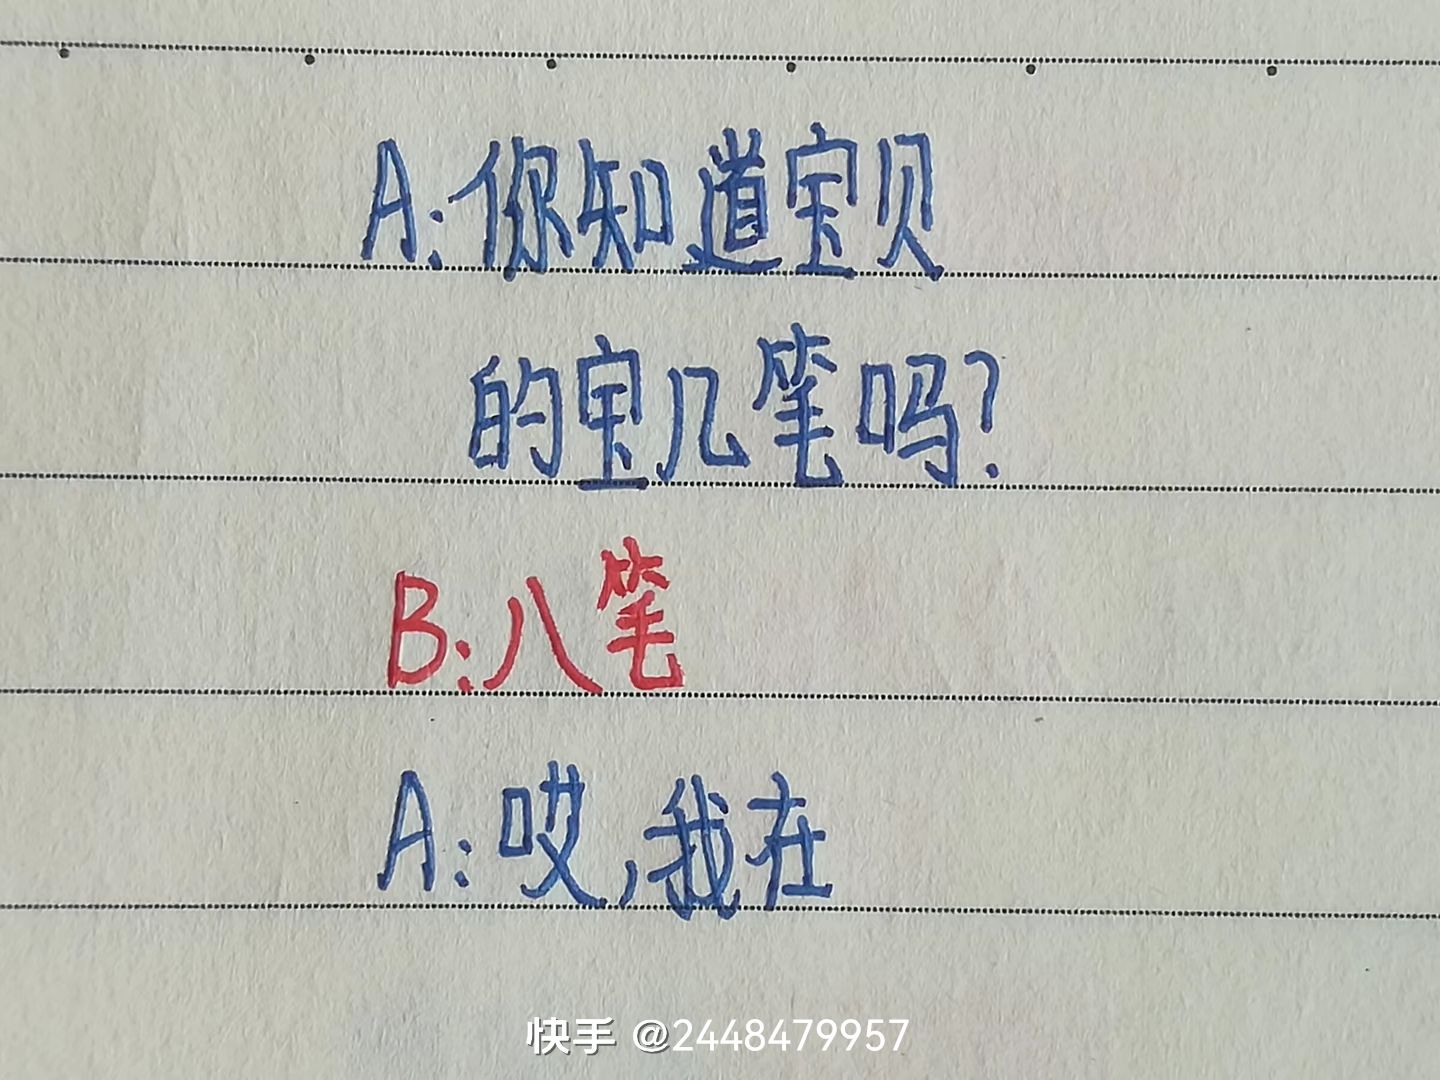 A:你知道宝贝
的宝几笔吗?
B:八笔
A:哎,我在
快手 @2448479957